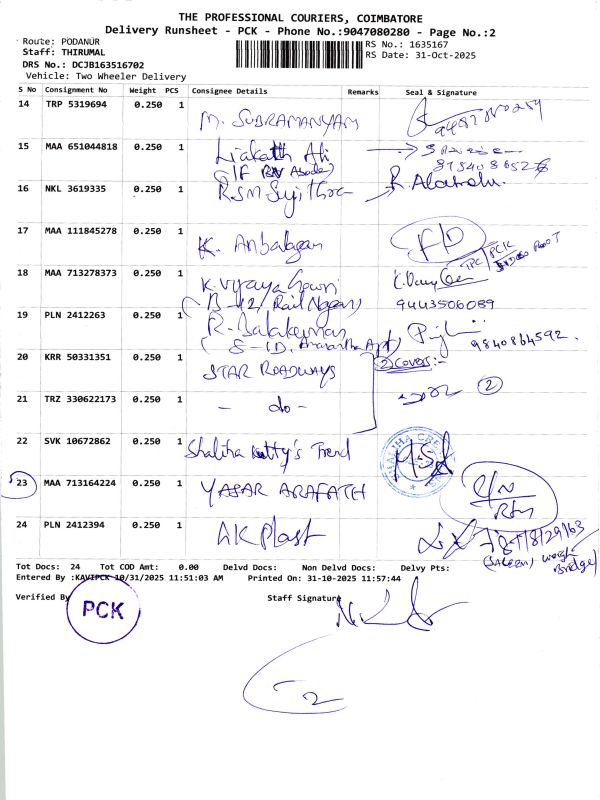 THE PROFESSIONAL COURIERS, COIMBATORE
Delivery Runsheet - PCK - Phone No.:9047080280 - Page No.:2
Route: PODANUR
RS No.: 1635167
Staff: THIRUMAL
RS Date: 31-Oct-2025
DRS No.: DCJB163516702
Vehicle: Two Wheeler Delivery
S No Consignment No Weight PCS Consignee Details Remarks Seal & Signature
14 TRP 5319694 0.250 1 M. SUBRAMANYAM
15 MAA 651044818 0.250 1 Liakath Ali
16 NKL 3619335 0.250 1 RSM Sujithra
17 MAA 111845278 0.250 1 K. Anbalagan
18 MAA 713278373 0.250 1 K. Vijaya Gowri
(B-42/Rail Nagar) 9443506089
19 PLN 2412263 0.250 1 R. Balakumar
9840864592.
20 KRR 50331351 0.250 1 STAR ROADWAYS (2) COVERS:-
21 TRZ 330622173 0.250 1 - do - 2
22 SVK 10672862 0.250 1 Shaliha Kutty's Trend
23 MAA 713164224 0.250 1 YASAR ARAFATH
24 PLN 2412394 0.250 1 AK Plast
Tot Docs: 24 Tot COD Amt: 0.00 Delvd Docs: Non Delvd Docs: Delvy Pts:
Entered By :KAVIPCK 10/31/2025 11:51:03 AM Printed On: 31-10-2025 11:57:44
Verified By Staff Signature
PCK
2